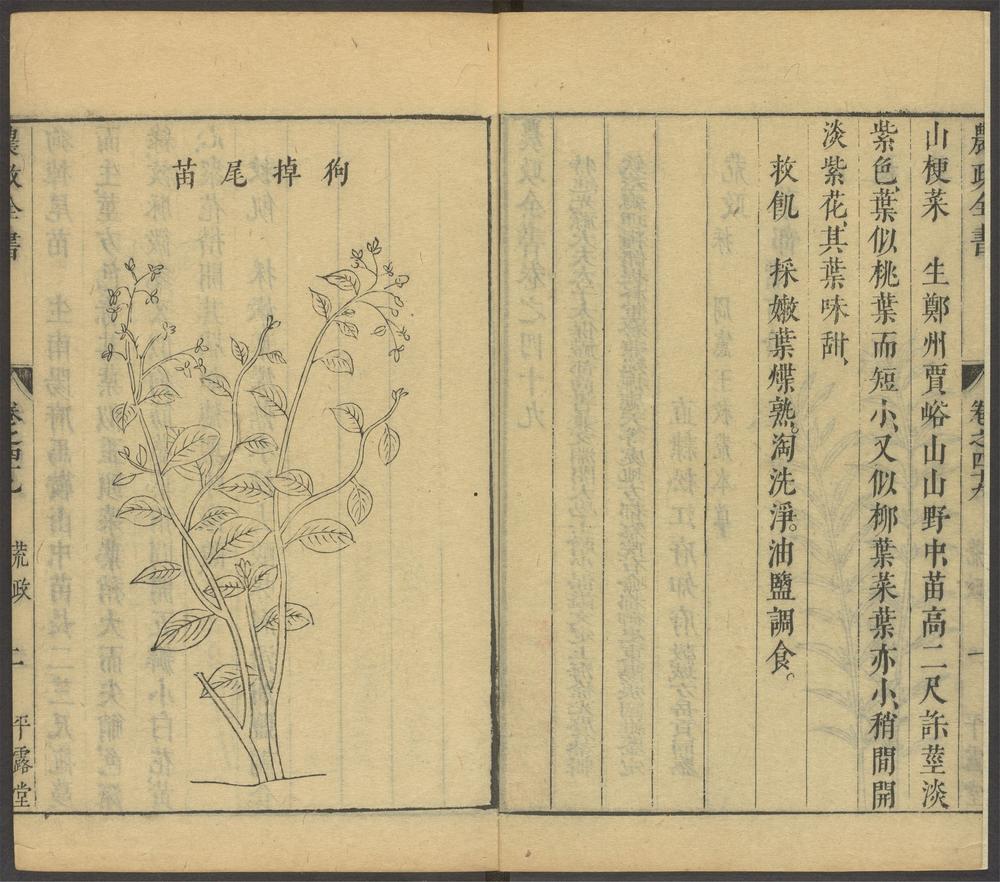 農政全書
卷之四十九
一
山梗菜　生鄭州賈峪山山野中苗高二尺許莖淡
紫色葉似桃葉而短小又似柳葉菜葉亦小稍間開
淡紫花其葉味甜
救飢　採嫩葉煠熟淘洗淨油鹽調食
狗掉尾苗
農政全書
卷之四十九
荒政
二
平露堂